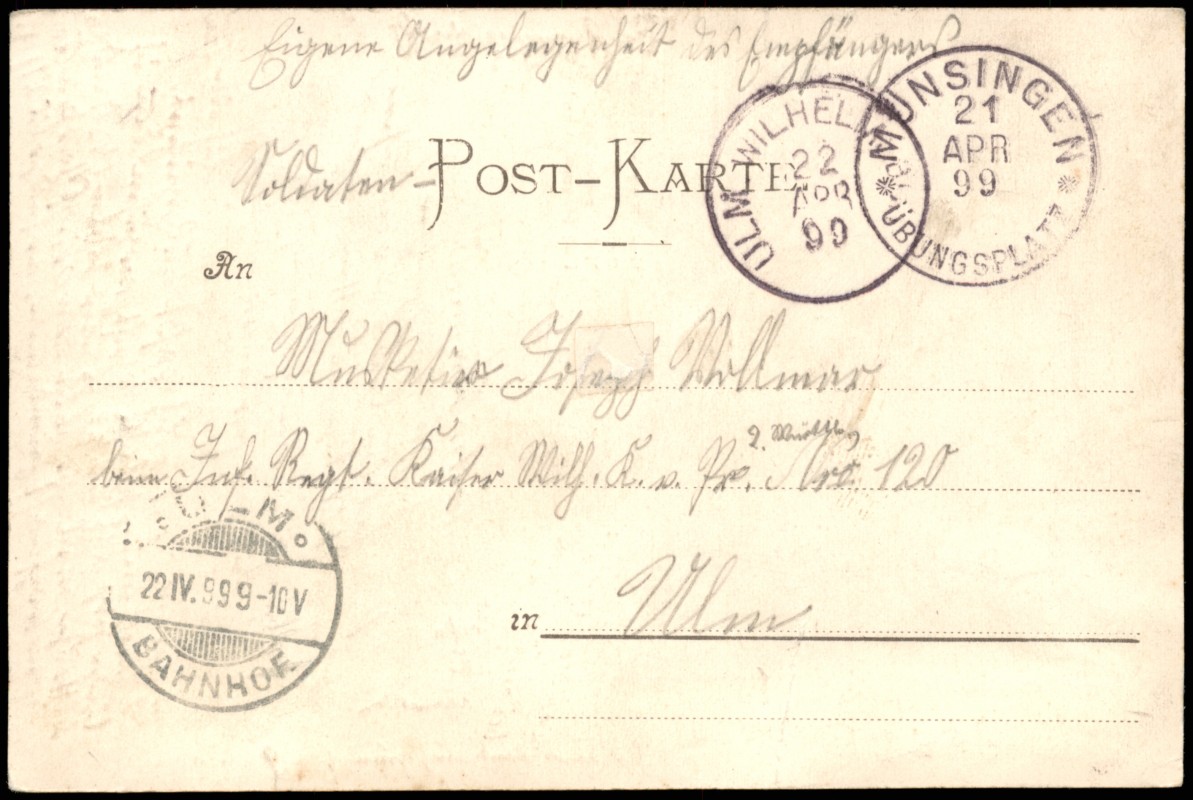 Eigene Angelegenheit des Empfängers
Soldaten-
POST-KARTE
MÜNSINGEN
21
APR
99
ÜBUNGSPLATZ
ULM WILHELM
22
APR
99
An
Musketier Joseph Vollmar
2. Württb.
beim Inf. Regt. Kaiser Wilh. K. v. Pr. Nro. 120
ULM
22 IV. 99 9-10 V
BAHNHOF.
in Ulm